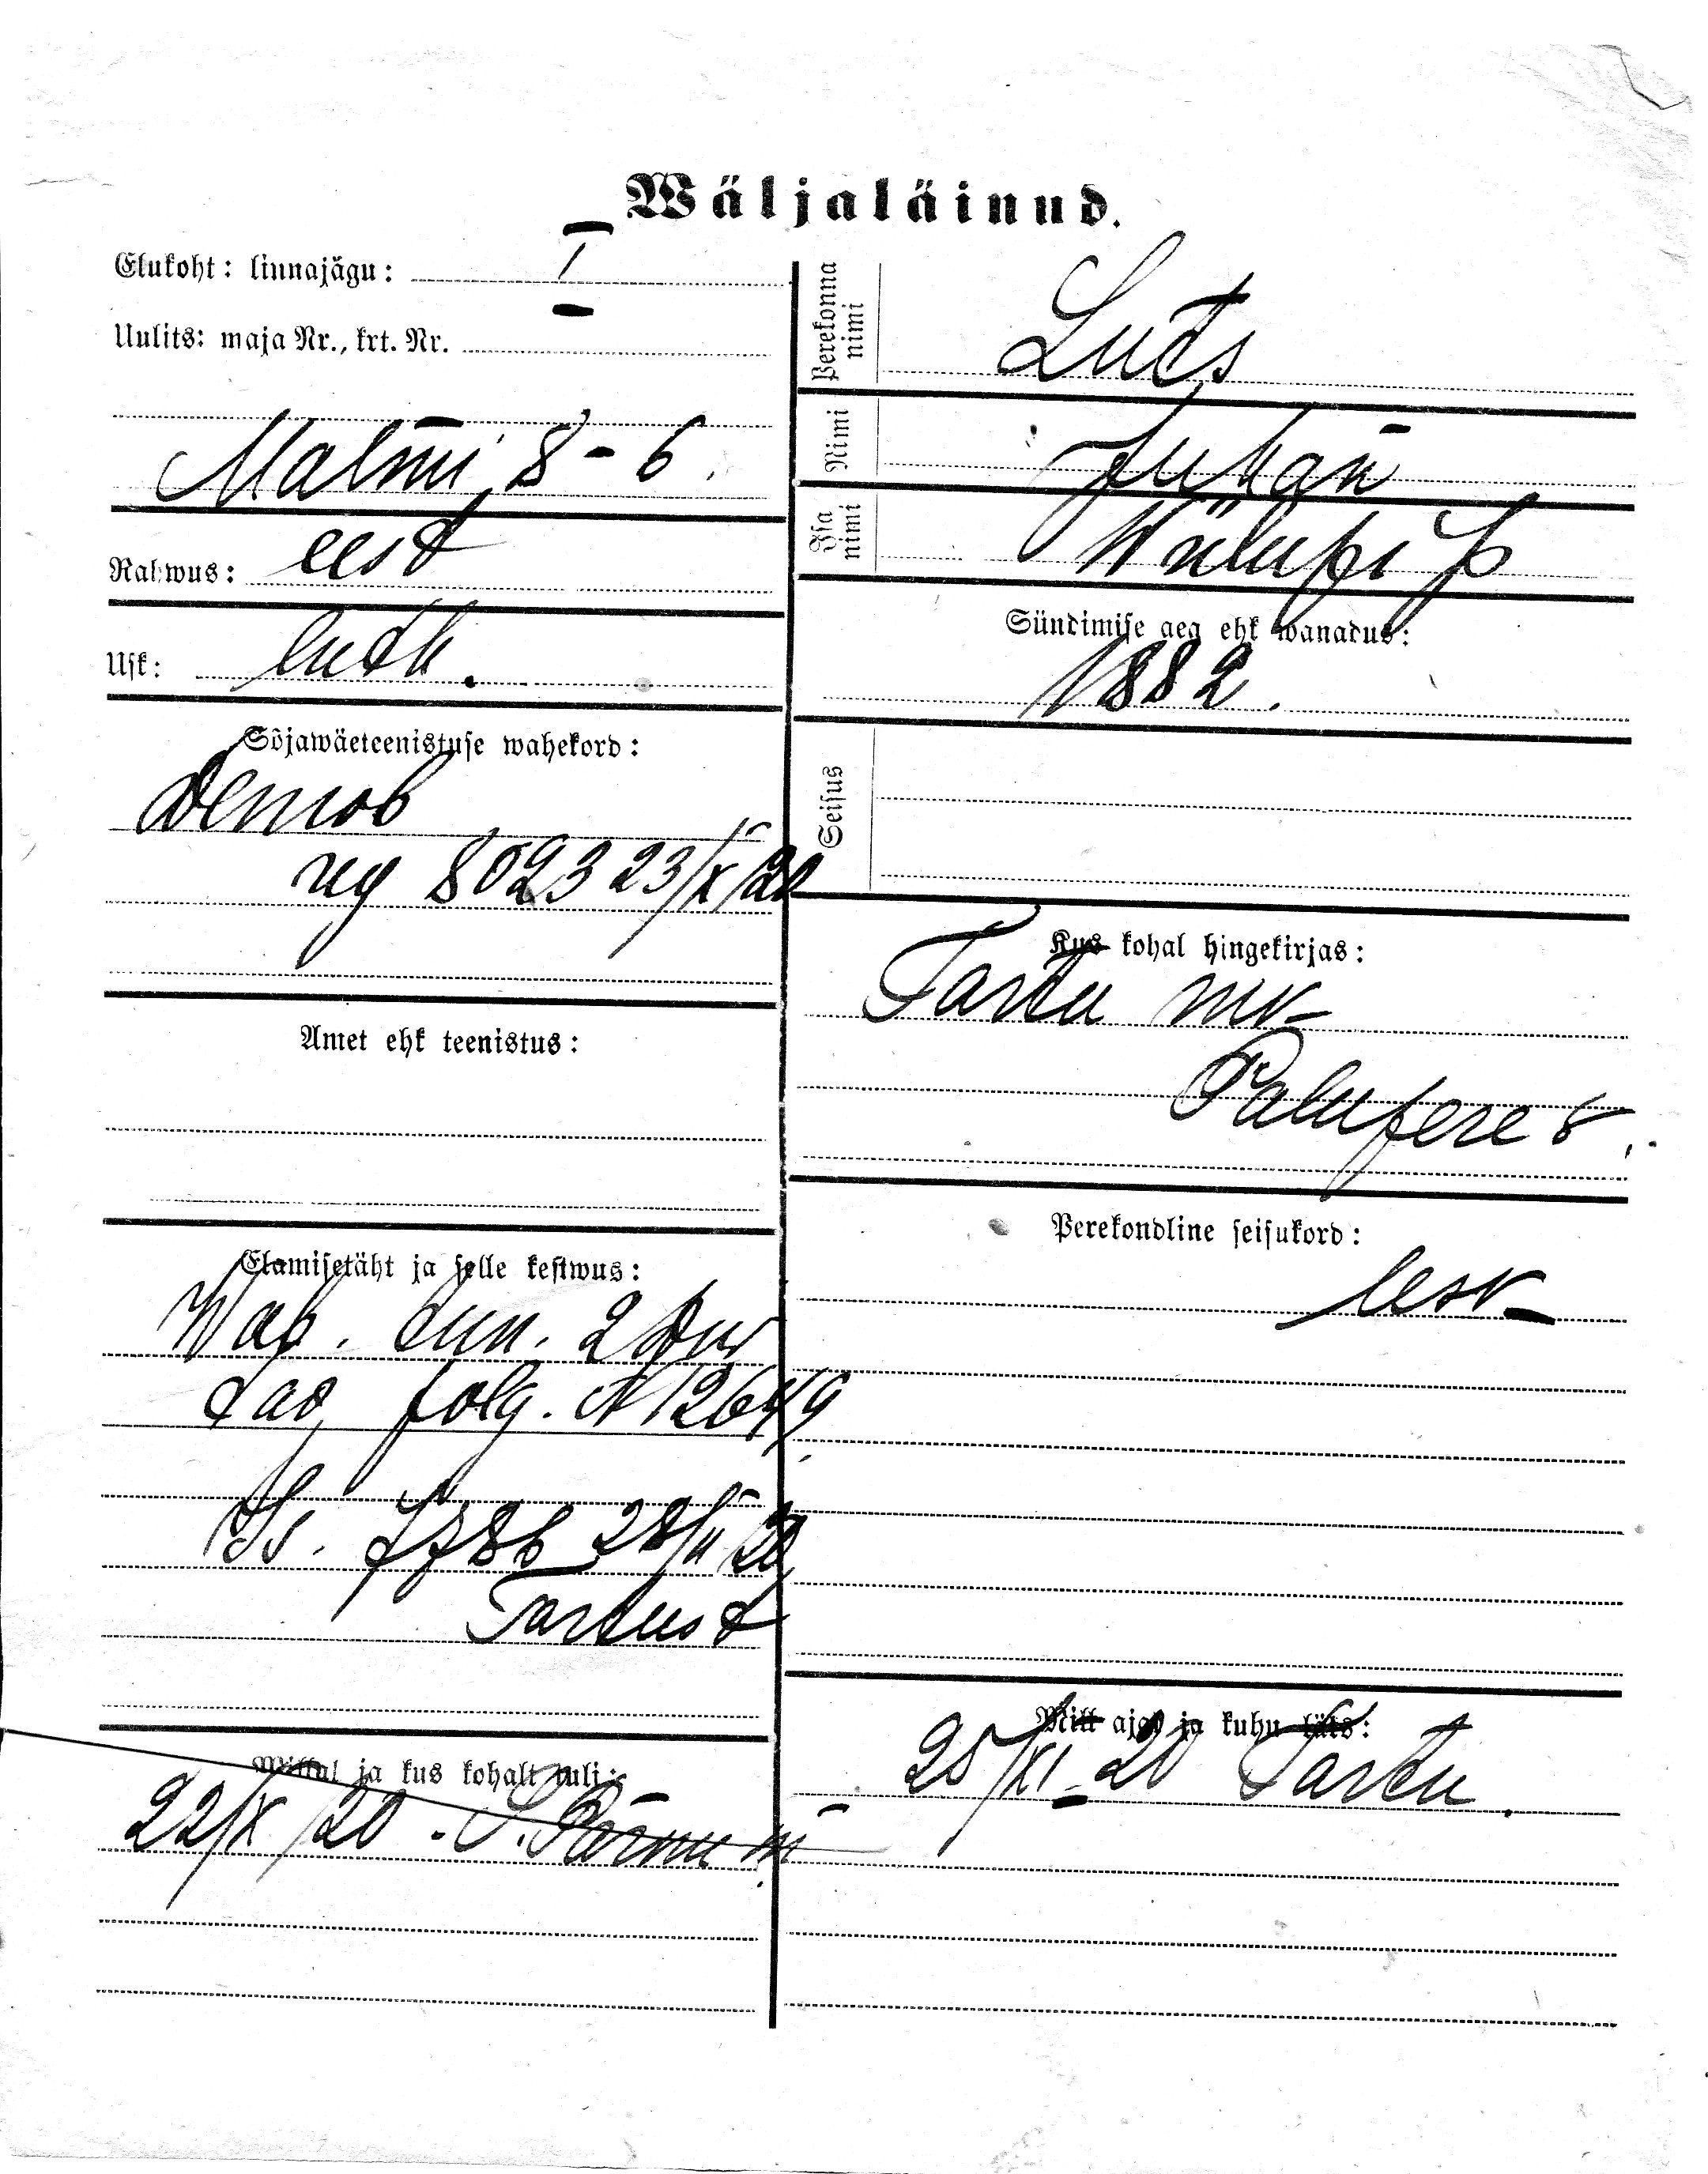 Wäljaläinud.
Elukoht: linnajägu: I
Uulits: maja Nr., krt. Nr.
Malmi 8-6.
Rahwus: eest
Usk: luth.
Sõjawäeteenistuse wahekord:
Demob
reg 8023 23/X/20
Amet ehk teenistus:
Elamisetäht ja selle kestwus:
Wab. tun. 2
polg. N 12649
7786 28/II 20
Tartust
Millal ja kus kohalt tuli:
22/X/20. Pärnu m
Perekonna
nimi
Luts
Nimi
Juhan
Isa
nimi
Sündimise aeg ehk wanadus:
1882.
Seisus
Kus kohal hingekirjas:
Tartu mk
Palupere v.
Perekondline seisukord:
lesk
Mill ajal ja kuhu läks:
25/XI-20 Tartu.